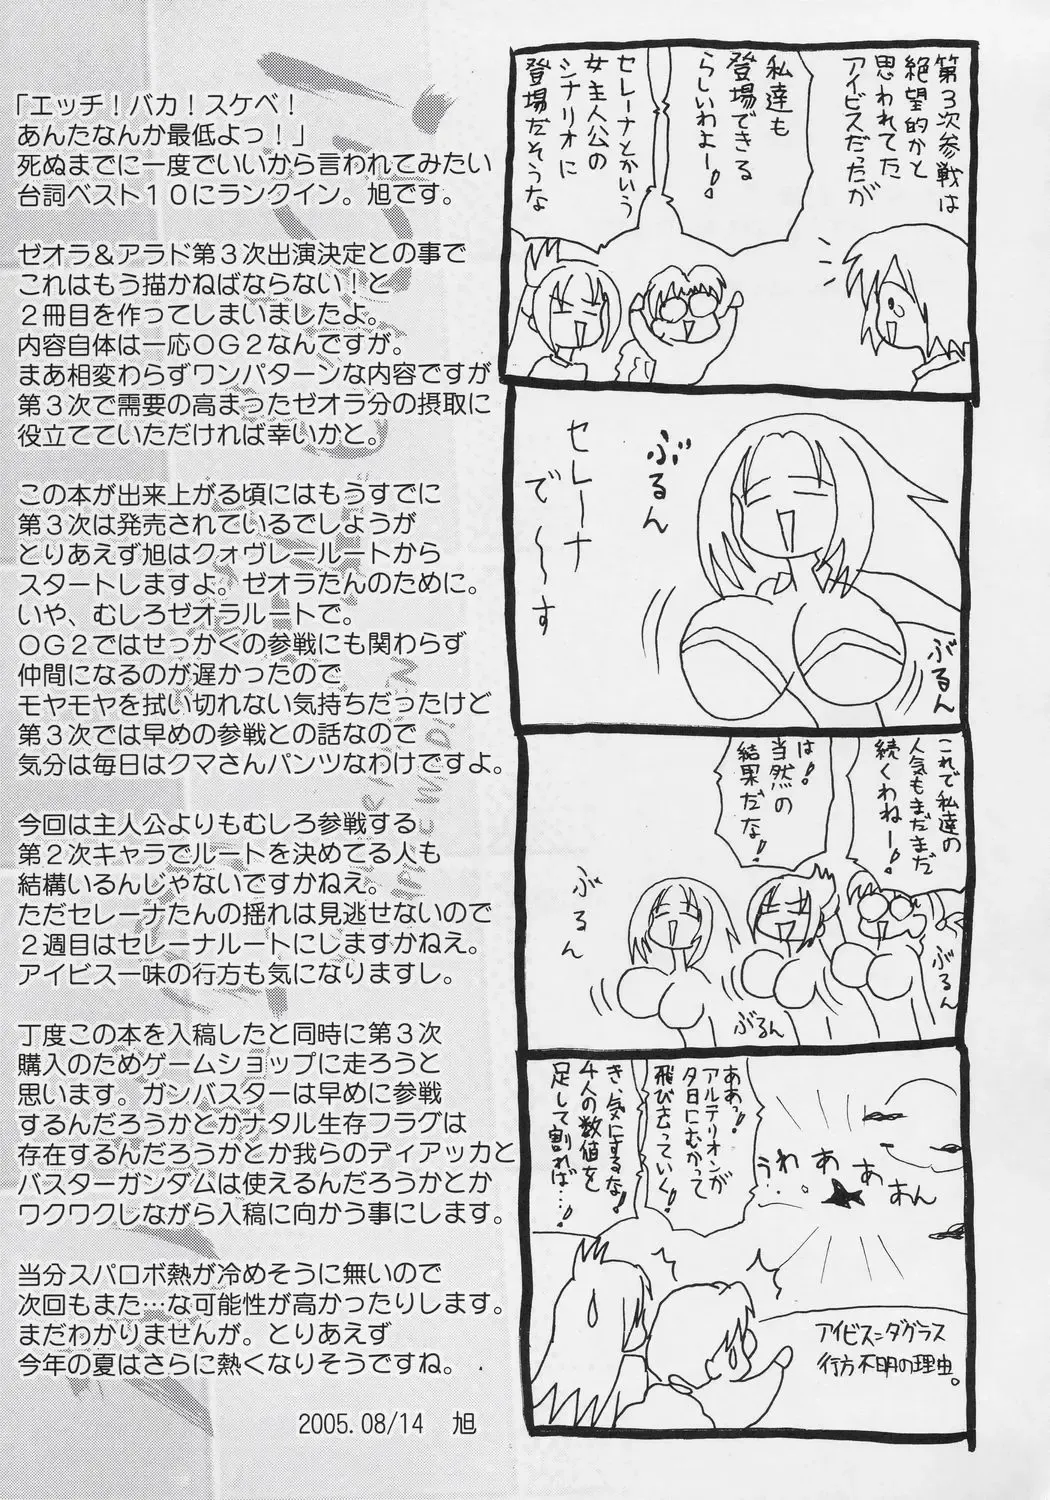 「エッチ！バカ！スケベ！
あんたなんか最低よっ！」
死ぬまでに一度でいいから言われてみたい
台詞ベスト１０にランクイン。旭です。
ゼオラ＆アラド第３次出演決定との事で
これはもう描かねばならない！と
２冊目を作ってしまいましたよ。
内容自体は一応ＯＧ２なんですが。
まあ相変わらずワンパターンな内容ですが
第３次で需要の高まったゼオラ分の摂取に
役立てていただければ幸いかと。
この本が出来上がる頃にはもうすでに
第３次は発売されているでしょうが
とりあえず旭はクォヴレールートから
スタートしますよ。ゼオラたんのために。
いや、むしろゼオラルートで。
ＯＧ２ではせっかくの参戦にも関わらず
仲間になるのが遅かったので、
モヤモヤを拭い切れない気持ちだったけど
第３次では早めの参戦との話なので
気分は毎日はクマさんパンツなわけですよ。
今回は主人公よりもむしろ参戦する
第２次キャラでルートを決めてる人も
結構いるんじゃないですかねえ。
ただセレーナたんの揺れは見逃せないので
２週目はセレーナルートにしますかねえ。
アイビス一味の行方も気になりますし。
丁度この本を入稿したと同時に第３次
購入のためゲームショップに走ろうと
思います。ガンバスターは早めに参戦
するんだろうかとかナタル生存フラグは
存在するんだろうかとか我らのディアッカと
バスターガンダムは使えるんだろうかとか
ワクワクしながら入稿に向かう事にします。
当分スパロボ熱が冷めそうに無いので
次回もまた…な可能性が高かったりします。
まだわかりませんが。とりあえず
今年の夏はさらに熱くなりそうですね。
2005.08/14　旭
第３次参戦は
絶望的かと
思われてた
アイビスだったが
私達も
登場できる
らしいわよー！
セレーナとかいう
女主人公の
シナリオに
登場だそうな
ぶるん
セレーナ
で〜〜す
ぶるん
これで私達の
人気もまだまだ
続くわねー！
は！
当然の
結果だな！
ぶるん
ぶるん
ぶるん
ああっ！
アルテリオンが
夕日にむかって
飛び去っていく！
き、気にするな！
４人の数値を
足して割れば…！
うわ…。ぁぁぁん
アイビス=ダグラス
行方不明の理由。